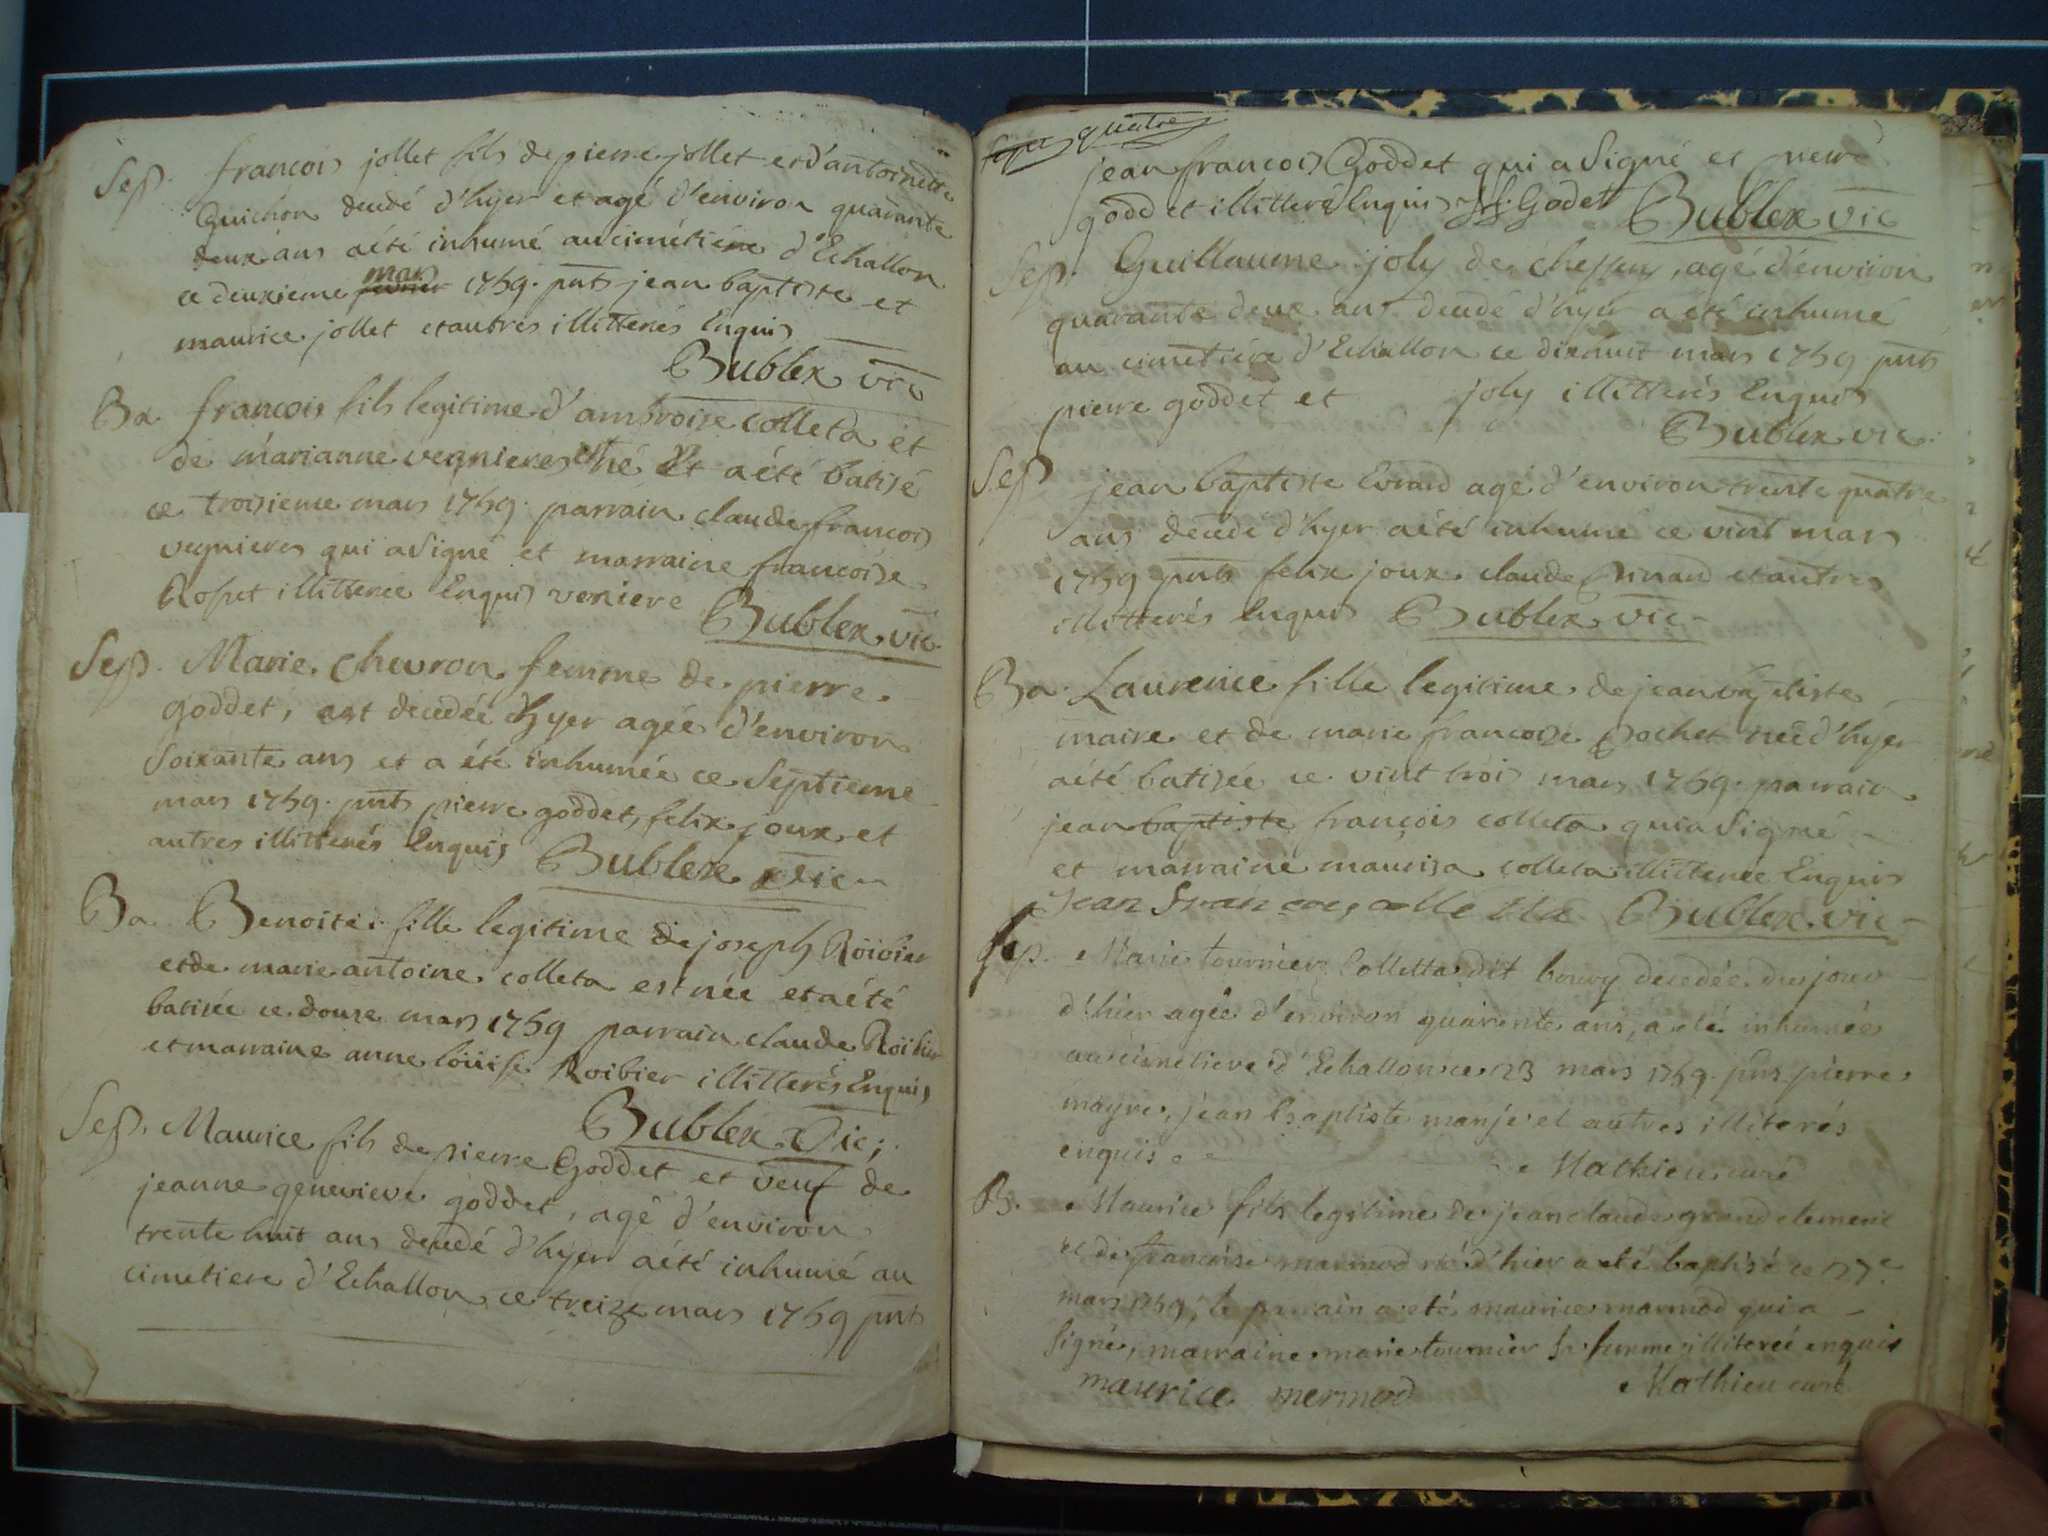 Sep. françois jollet fils de pierre jollet et d'antoinette
Guichon decedé d'hyer et agé d'environ quarante
deux ans a été inhumé au cimétiére d'Echallon
ce deuxieme fevrier mars 1759. pnts jean baptiste et
maurice jollet et autres illitterés Enquis
Bublex vic
Ba. françois fils legitime d'ambroise colleta et
de marianne vegnieres est né et a été batisé
ce troisieme mars 1759. parrain claude françois
vegnieres qui a signé et marraine françoise
Rosset illitterée Enquis veniere Bublex vic.
Sep. Marie chevron femme de pierre
goddet, est decedée d'hyer agée d'environ
soixante ans et a été inhumée ce septieme
mars 1759. pnts pierre goddet, felix joux et
autres illitterés Enquis Bublex vic
Ba Benoite fille legitime de joseph Roibier
et de marie antoine colleta est née et a été
batisée ce douze mars 1759 parrain claude Roibier
et marraine anne loüise Roibier illitterés Enquis
Bublex Vic;
Sep. Maurice fils de pierre Goddet et veuf de
jeanne genevieve goddet, agé d'environ
trente huit ans decedé d'hyer a été inhumé au
cimetiere d'Echallon ce treize mars 1759 pnts
quatre
jean françois Goddet qui a signé et pierre
goddet illitteré Enquis J f. Godet Bublex vic
Sep. Guillaume joly de agé d'environ
quarante deux ans decedé d'hyer a été inhumé
au cimetiére d'Echallon ce dixhuit mars 1759 pnts
pierre goddet et joly illitterés Enquis
Bublex vic.
Sep jean baptiste Evrard agé d'environ trente quatre
ans decedé d'hyer a été inhumé ce vint mars
1759 pnts felix joux claude et autres
illitterés Enquis Bublex vic.
Ba. Laurence fille legitime de jean baptiste
maire et de marie françoise pochet née d'hyer
a été batisée ce vint trois mars 1759. parrain
jean baptiste françois colleta qui a signé
et marraine mauriza colleta illitterée Enquis
Jean françois collétta Bublex vic
Sep. Marie tournier Colletta dit bouvy decedée du jour
d'hier agée d'environ quarente ans, a eté inhumée
au cimetiere d'Echallon ce 23 mars 1759. pnts pierre
mayre, jean Baptiste manje et autres illiterés
enquis. Mathieu curé
B. Maurice fils legitime de jean claude grand clement
et de françoise marmod né d'hier a eté baptisé ce 27e
mars 1759, le parrain a eté maurice marmod qui a
signé, marraine marie tournier sa femme illiterée enquis
maurice mermod Mathieu curé